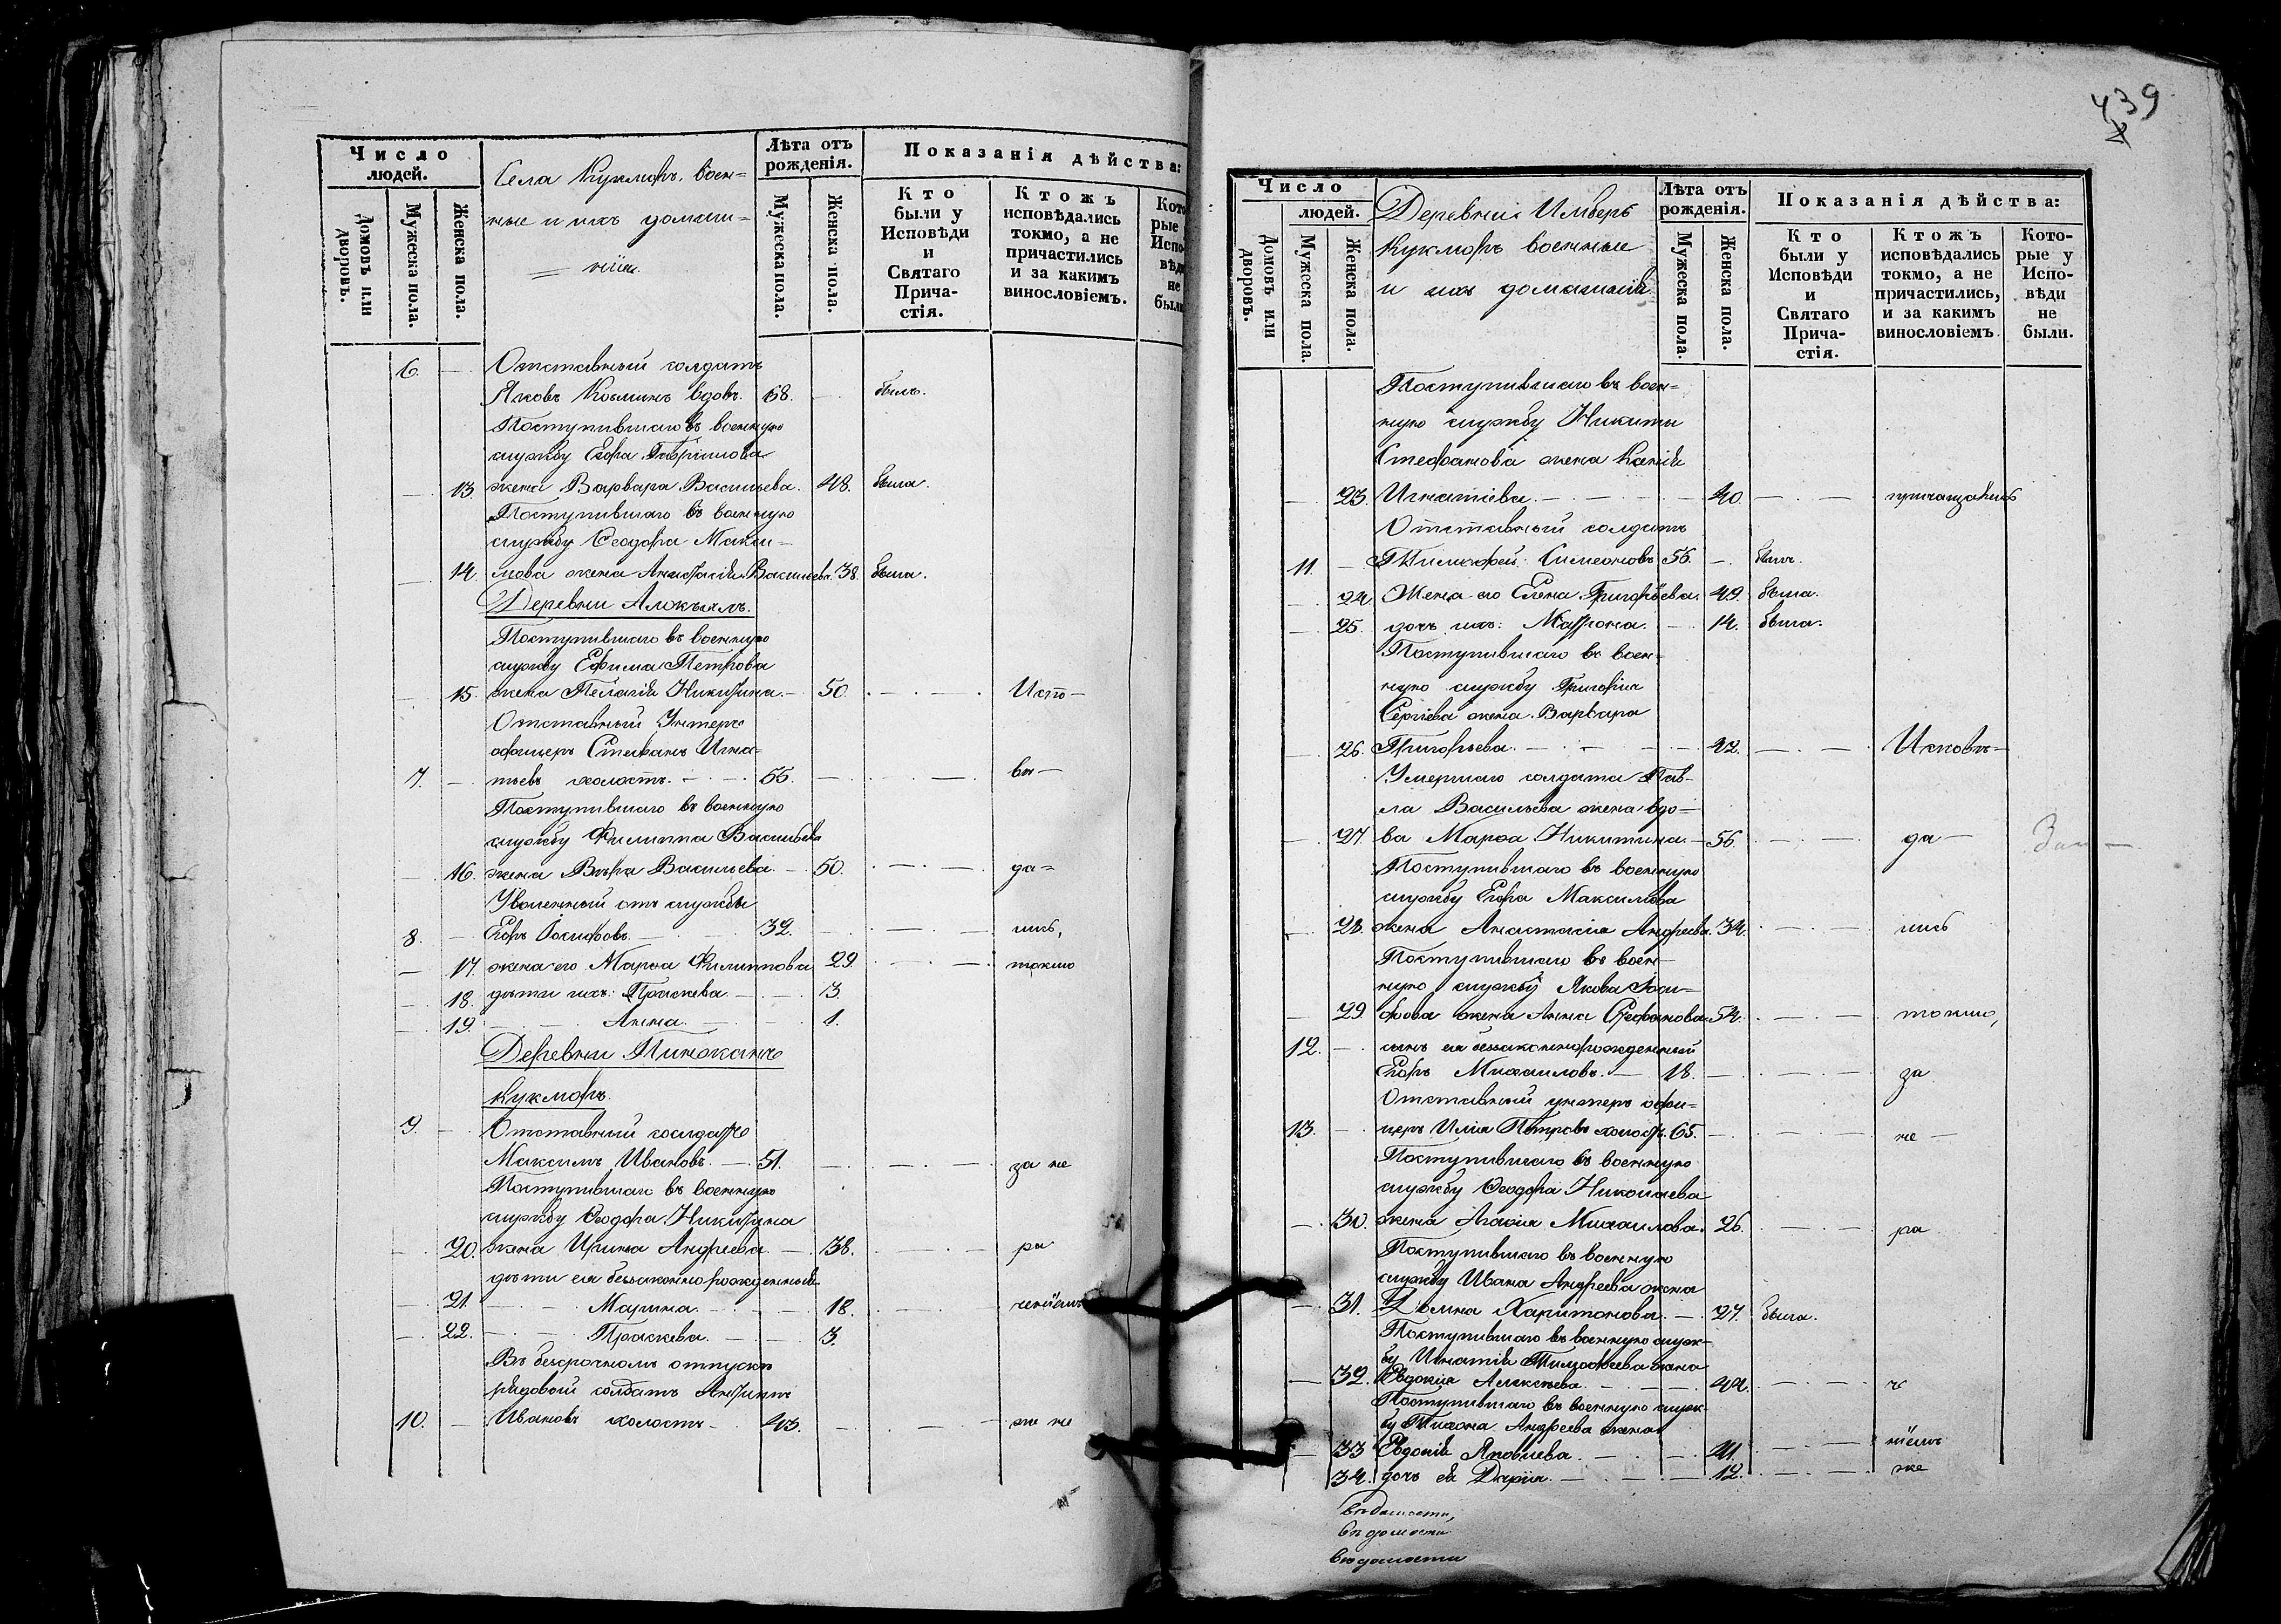 Число людей.
Домовъ или дворовъ.
Мужеска пола.
Женска пола.
Села Кукморъ воен=
ные и ихъ домаш=
нія.
Лѣта отъ рожденія.
Мужеска пола.
Женска пола.
Показанія дѣйства:
Кто были у Исповѣди и Святаго Причастія.
Ктожъ исповѣдались токмо, а не причастились и за какимъ винословіемъ.
Кото
рые
Испо
вѣд
не
были
6. — Отставный солдатъ
Яковъ Козминъ вдовъ. 68. — былъ.
Поступившаго въ военную
службу Егора Гаврилова
— 13. жена Варвара Васильева. 48. была.
Поступившаго въ военную
службу Ѳеодора Макси—
— 14. мова жена Анастасія Васильева. 38. была.
Деревни
Поступившаго въ военную
службу Ефима Петрова
— 15. жена Пелагія Никитина. — 50. — Испо—
Отставный Унтеръ
офицеръ Стефанъ Игна=
7. — тьевъ холостъ. — 55. — вѣ—
Поступившаго въ военную
службу Филиппа Васильева
— 16. жена Вѣра Васильева. — 50. — да=
Уволенный отъ службы
8. — Егоръ Осиповъ. — 32. — лись,
— 17. жена его Марѳа Филиппова 29. — токмо
— 18. дѣти ихъ: Праскева — 3.
— 19. — Анна. — 1.
Деревни
Кукморъ.
9. — Отставный солдатъ
Максимъ Ивановъ. — 51. — за не
Поступившаго въ военную
службу Ѳеодора Никитина
— 20. жена Ирина Андреева. — 38. — ра
дѣти ея беззаконнорожденныя
— 21. — Марина. — 18. — ченіемъ
— 22. — Праскева. — 3.
Въ безсрочномъ отпускѣ
рядовой солдатъ Антипъ
10. — Ивановъ холостъ — 43. — же не
439
Число людей.
Домовъ или дворовъ.
Мужеска пола.
Женска пола.
Деревни Имберь
Кукморъ военные
и ихъ домашнія
Лѣта отъ рожденія.
Мужеска пола.
Женска пола.
Показанія дѣйства:
Кто были у Исповѣди и Святаго Причастія.
Ктожъ исповѣдались токмо, а не причастились, и за какимъ винословіемъ.
Которые у Исповѣди не были.
Поступившаго въ воен=
ную службу Никиты
Стефанова жена Ксенія
— 23. Игнатіева. — 40. —
Отставный солдатъ
11. — Тимофей Симеоновъ 56. — былъ.
— 24. Жена его Елена Григорьева. 49. была.
— 25. дочь ихъ: Матрона. — 14. была.
Поступившаго въ воен=
ную службу Григорія
Сергіева жена Варвара
— 26. Григорьева. — 42. — Исповѣ—
Умершаго солдата Пав—
ла Васильева жена вдо—
— 27. ва Марѳа Никитина — 56. — да—
Поступившаго въ военную
службу Егора Максимова
— 28. жена Анастасія Андреева. 34. — лись
Поступившаго въ воен—
ную службу Якова Оси—
— 29. фова жена Анна Стефанова. 54. — токмо,
12. — сынъ ея беззаконнорожденный
Егоръ Михаиловъ. — 18. — за
Отставный унтеръ офи=
13. — церъ Илія Петровъ холостъ. 65. — не—
Поступившаго въ военную
службу Ѳеодора Николаева
— 30. жена Агафія Михаилова. 26. — ра
Поступившаго въ военную
службу Ивана Андреева жена
— 31. Домна Харитонова. — 27. была.
Поступившаго въ военную служ—
бу Игнатія Тимофеева жена
— 32. Евдокія Алексѣева. — 44. — че
Поступившаго въ военную служ—
бу Тихона Андреева жена
— 33. Евдокія Яковлева. — 41. — ніемъ
34. дочь ея Дарія. — 12. — же
вѣдомости,
вѣдомости
вѣдомости